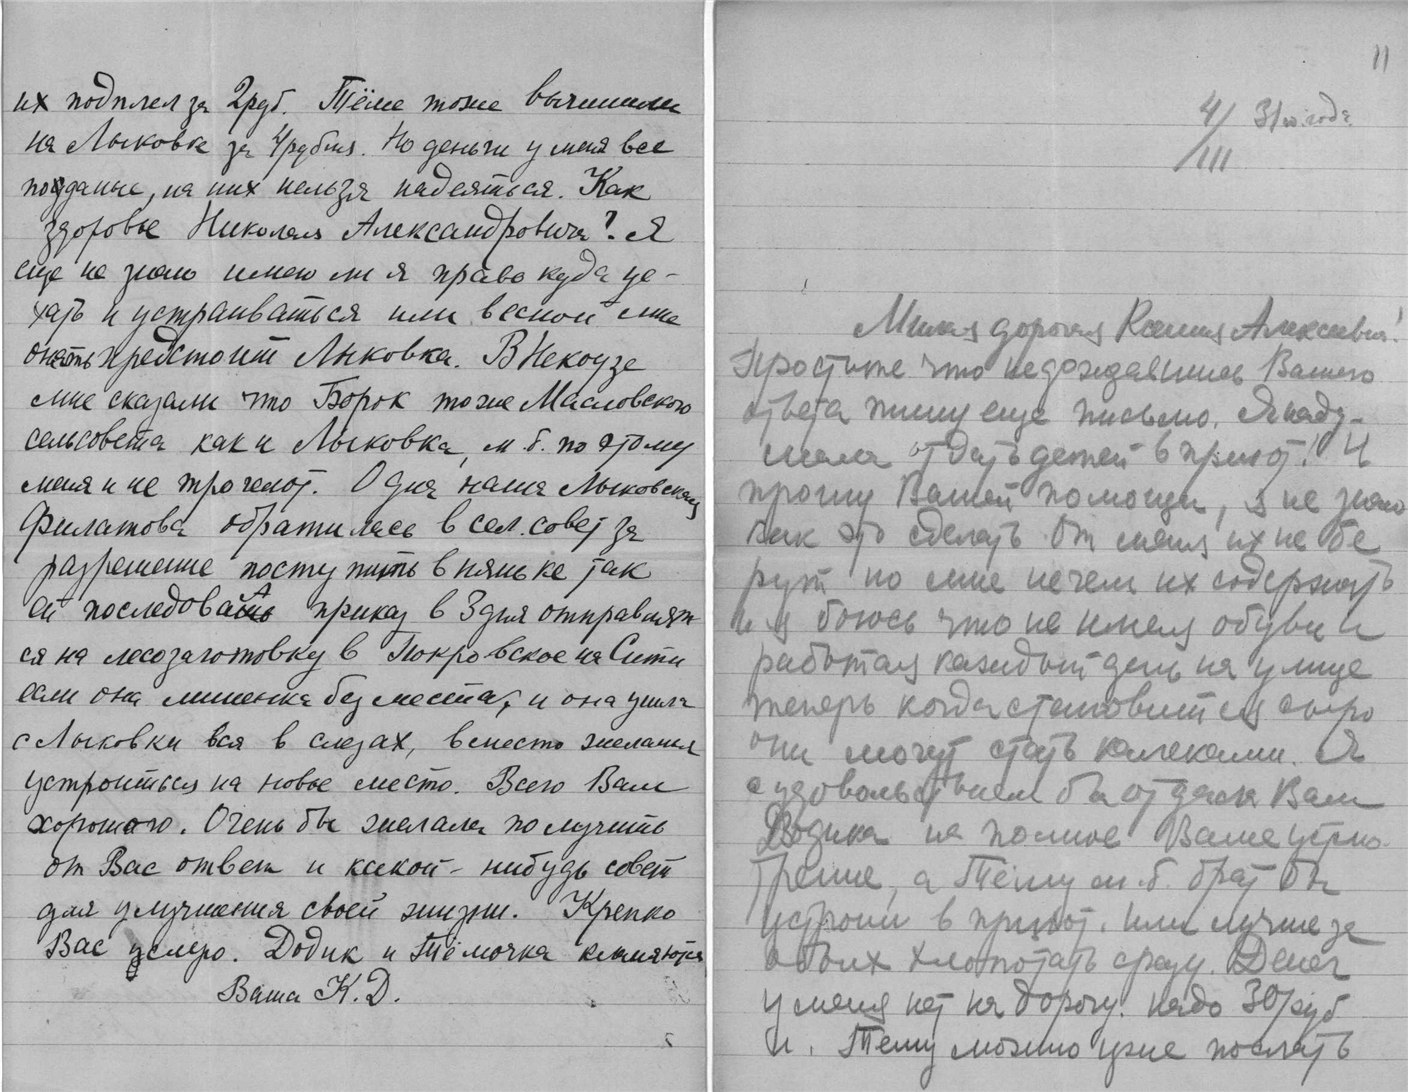 их подплел за 2руб. Тёме тоже вычинили
на Лыковке за 4рубля. Но деньги у меня все
позданы, на них нельзя надеяться. Как
здоровье Николая Александровича? Я
еще не знаю имею ли я право куда уе-
хать и устраиваться или весной мне
опять предстоит Лыковка. В Некоузе
мне сказали что Борок тоже Масловского
сельсовета как и Лыковка, м.б. по этому
меня и не трогают. Одна наша Лыковская
Филатова обратилась в сел.совет за
разрешение поступить в няньке так
ей последовало приказ в 3 дня отправлят-
ся на лесозаготовку в Покровское на Сити
если она лишенка без места, и она ушла
с Лыковки вся в слезах, вместо желания
устроиться на новое место. Всего Вам
хорошего. Очень бы желала получить
от Вас ответ и какой-нибудь совет
для улучшения своей жизни. Крепко
Вас целую. Додик и Тёмочка кланяются
Ваша К.Д.
11
4/III 31го года.
Милая дорогая Ксения Алексеевна!
Простите что недождавшись Вашего
ответа пишу еще письмо. Я наду-
мала отдать детей в приют! И
прошу Вашей помощи, я не знаю
как это сделать. От меня их не бе
рут но мне нечем их содержать
и я боюсь что не имея обуви и
работая каждый день на улице
теперь когда становится сыро
они могут стать калеками. Я
с удовольствием бы отдала Вам
Додика на полное Ваше усмо-
трение, а Тёму м.б. брат бы
устроил в приют. Или лучше за
обоих хлопотать сразу. Денег
у меня нет на дорогу. надо 30руб
и. Тему можно уже послать